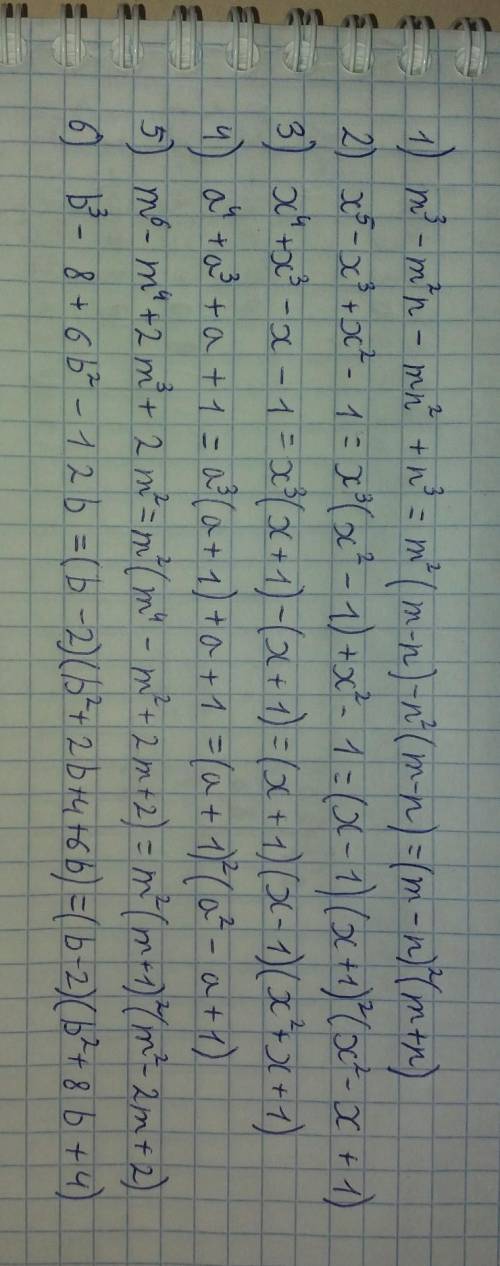 1) m³ - m²n - mn² + n³ = m²(m-n) - n²(m-n) = (m-n)²(m+n)
2) x⁵ - x³ + x² - 1 = x³(x² - 1) + x² - 1 = (x - 1)(x+1)²(x² - x + 1)
3) x⁴ + x³ - x - 1 = x³(x+1) - (x+1) = (x+1)(x-1)(x² + x + 1)
4) a⁴ + a³ + a + 1 = a³(a+1) + a + 1 = (a+1)²(a² - a + 1)
5) m⁶ - m⁴ + 2m³ + 2m² = m²(m⁴ - m² + 2m + 2) = m²(m+1)²(m² - 2m + 2)
6) b³ - 8 + 6b² - 12b = (b-2)(b² + 2b + 4 + 6b) = (b-2)(b² + 8b + 4)